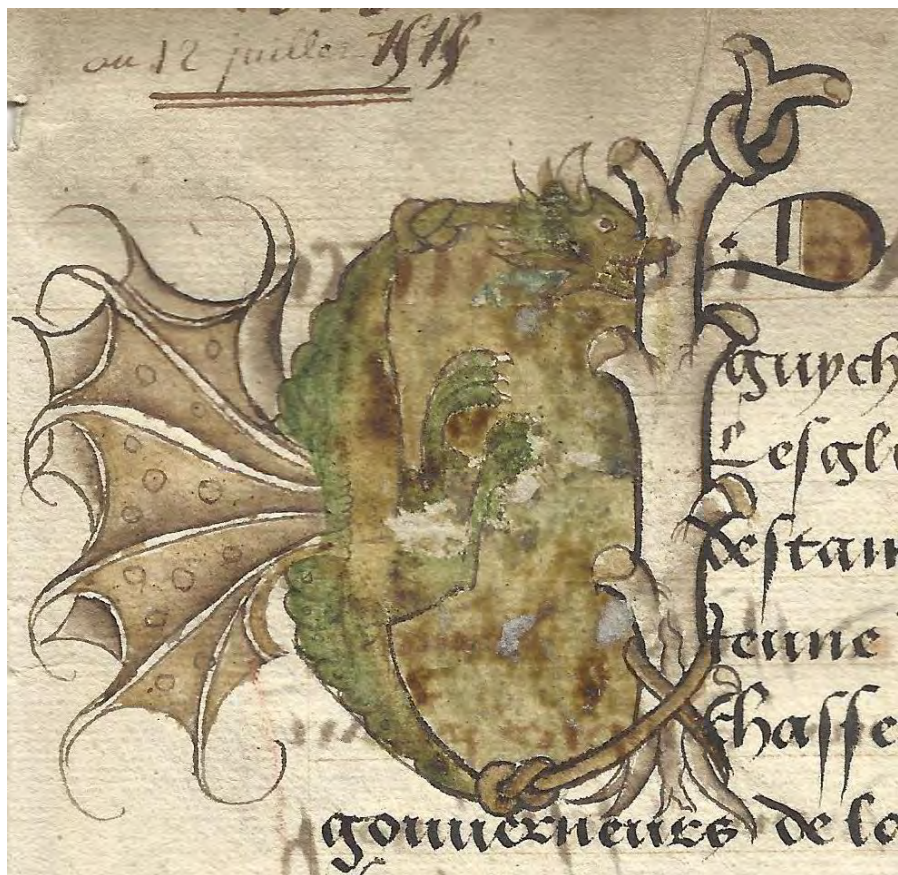 au 12 juillet 1515
guych
Les gli
destam
tenne
Chasse
gouverneurs de lo